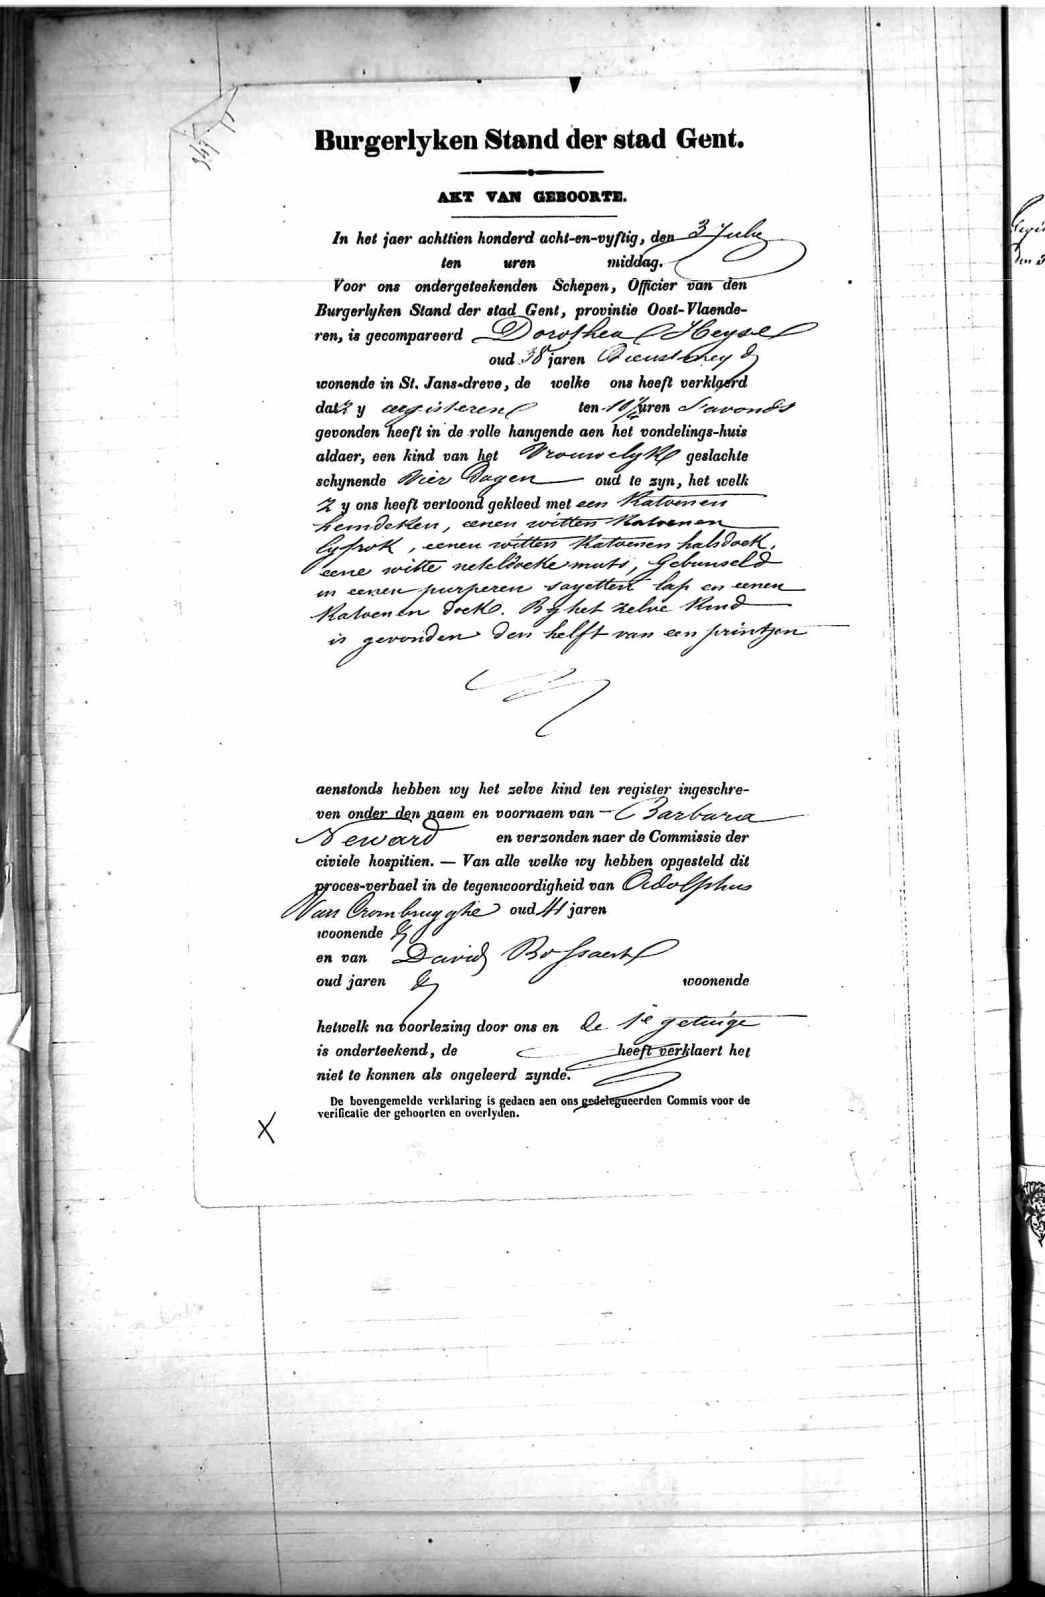 Burgerlyken Stand der stad Gent.
AKT VAN GEBOORTE.
In het jaer achttien honderd acht-en-vyftig, den 3 July
ten uren middag.
Voor ons ondergeteekenden Schepen, Officier van den
Burgerlyken Stand der stad Gent, provintie Oost-Vlaende-
ren, is gecompareerd Dorothea Heyse
oud 38 jaren
wonende in St. Jans-dreve, de welke ons heeft verklaerd
dat z y eegisteren ten 10 ½ uren s'avonds
gevonden heeft in de rolle hangende aen het vondelings-huis
aldaer, een kind van het Vrouwelyk geslachte
schynende Vier Dagen oud te zyn, het welk
z y ons heeft vertoond gekleed met een Katoenen
hemdeken, eenen witten Katoenen
lyfrok, eenen witten Katoenen halsdoek,
eene witte neteldoeke muts, Gebunseld
in eenen purperen sayetten lap en eenen
Katoenen doek. By het zelve Kind
is gevonden den helft van een printjen
aenstonds hebben wy het zelve kind ten register ingeschre-
ven onder den naem en voornaem van Barbara
Neward en verzonden naer de Commissie der
civiele hospitien. — Van alle welke wy hebben opgesteld dit
proces-verbael in de tegenwoordigheid van Adolphus
Van Crombrugghe oud 41 jaren
woonende
en van David Bossaert
oud jaren woonende
hetwelk na voorlezing door ons en de 1e getuige
is onderteekend, de heeft verklaert het
niet te konnen als ongeleerd zynde.
De bovengemelde verklaring is gedaen aen ons gedelegueerden Commis voor de
verificatie der geboorten en overlyden.